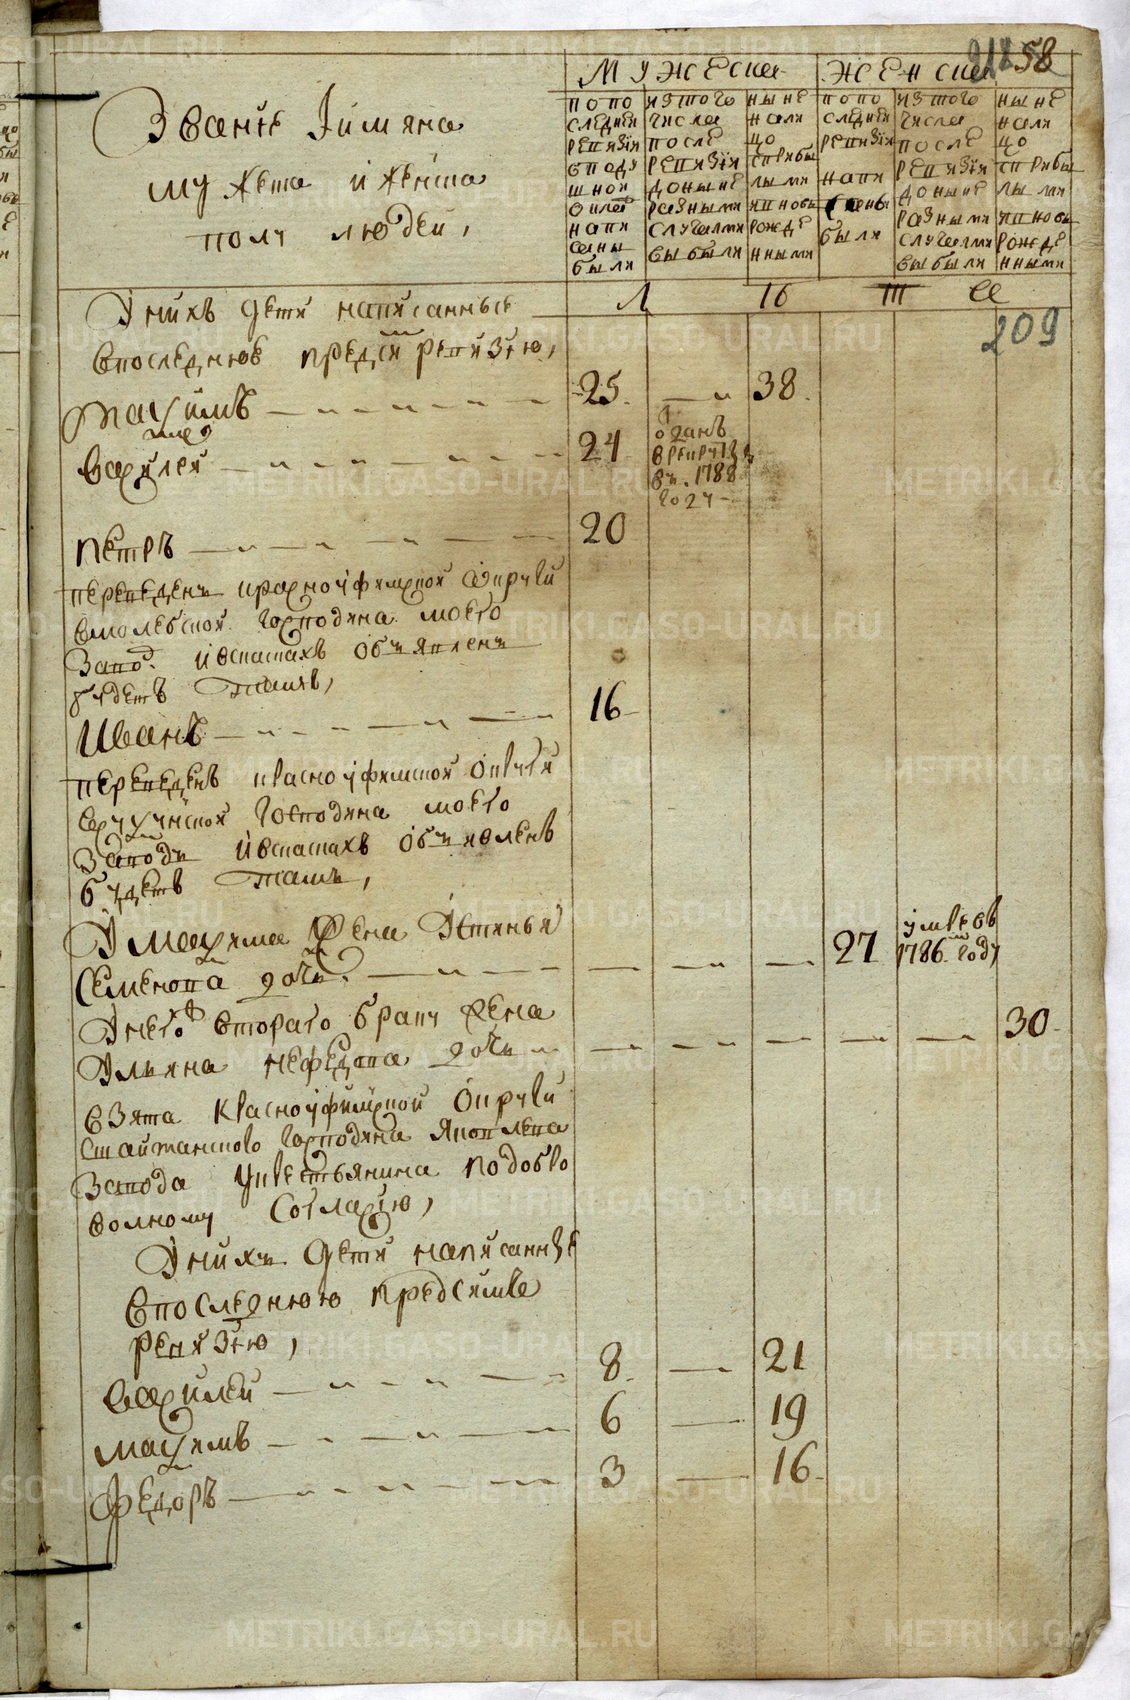 218 58
МУЖЕска ЖЕНска
Званіе Іимяна
мужеска и женска
полу людей,
попо
следней
ревизіи
вподу
шной
окладъ
напи
саны
были
изтого
числа
после
ревизіи
доныне
разными
случаями
выбыли
ныне
нали
цо
спрібы
лыми
ивновь
рожде
нными
попо
следней
ревизіи
напи
саны
были
изтого
числа
после
ревизіи
доныне
разными
случаями
выбыли
ныне
нали
цо
спрібы
лыми
ивновь
рожде
нными
Л
209
Уних дети написанные
впоследнюе пред сим ревизию,
Максимъ 25. 38.
Василей 24 оданъ
врекруты
въ 1788
году
Петръ 20
переведенъ красноуфимской округи
господина моего
завод ивсказкахъ объявленъ
будетъ тамъ,
Иванъ 16
переведенъ красноуфимской округи
господина моего
заводъ ивсказкахъ объявленъ
будетъ тамъ,
Умаксима жена Устинья
Семенова дочь 27 умерла
1786 году
Унего втораго брака жена
Ульяна нефедова дочь 30
взята Красноуфимской округи
Шайтанского господина Яковлева
завода укрестьянина подобро
волному согласию,
Унихъ дети написанные
впоследнюю предсимъ
ревизию,
Василей 8. 21
Максимъ 6 19
Федоръ 3 16
METRIKI.GASO-URAL.RU